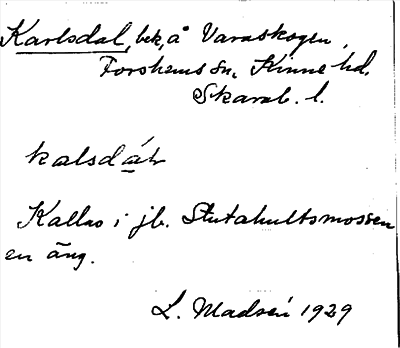 Karlsdal, bek, å Varaskogen,
Forshems sn, Kinne hd.
Skarab. l.
Kallas i jb. Stutahultsmossen
en äng.
L. Madsén 1929